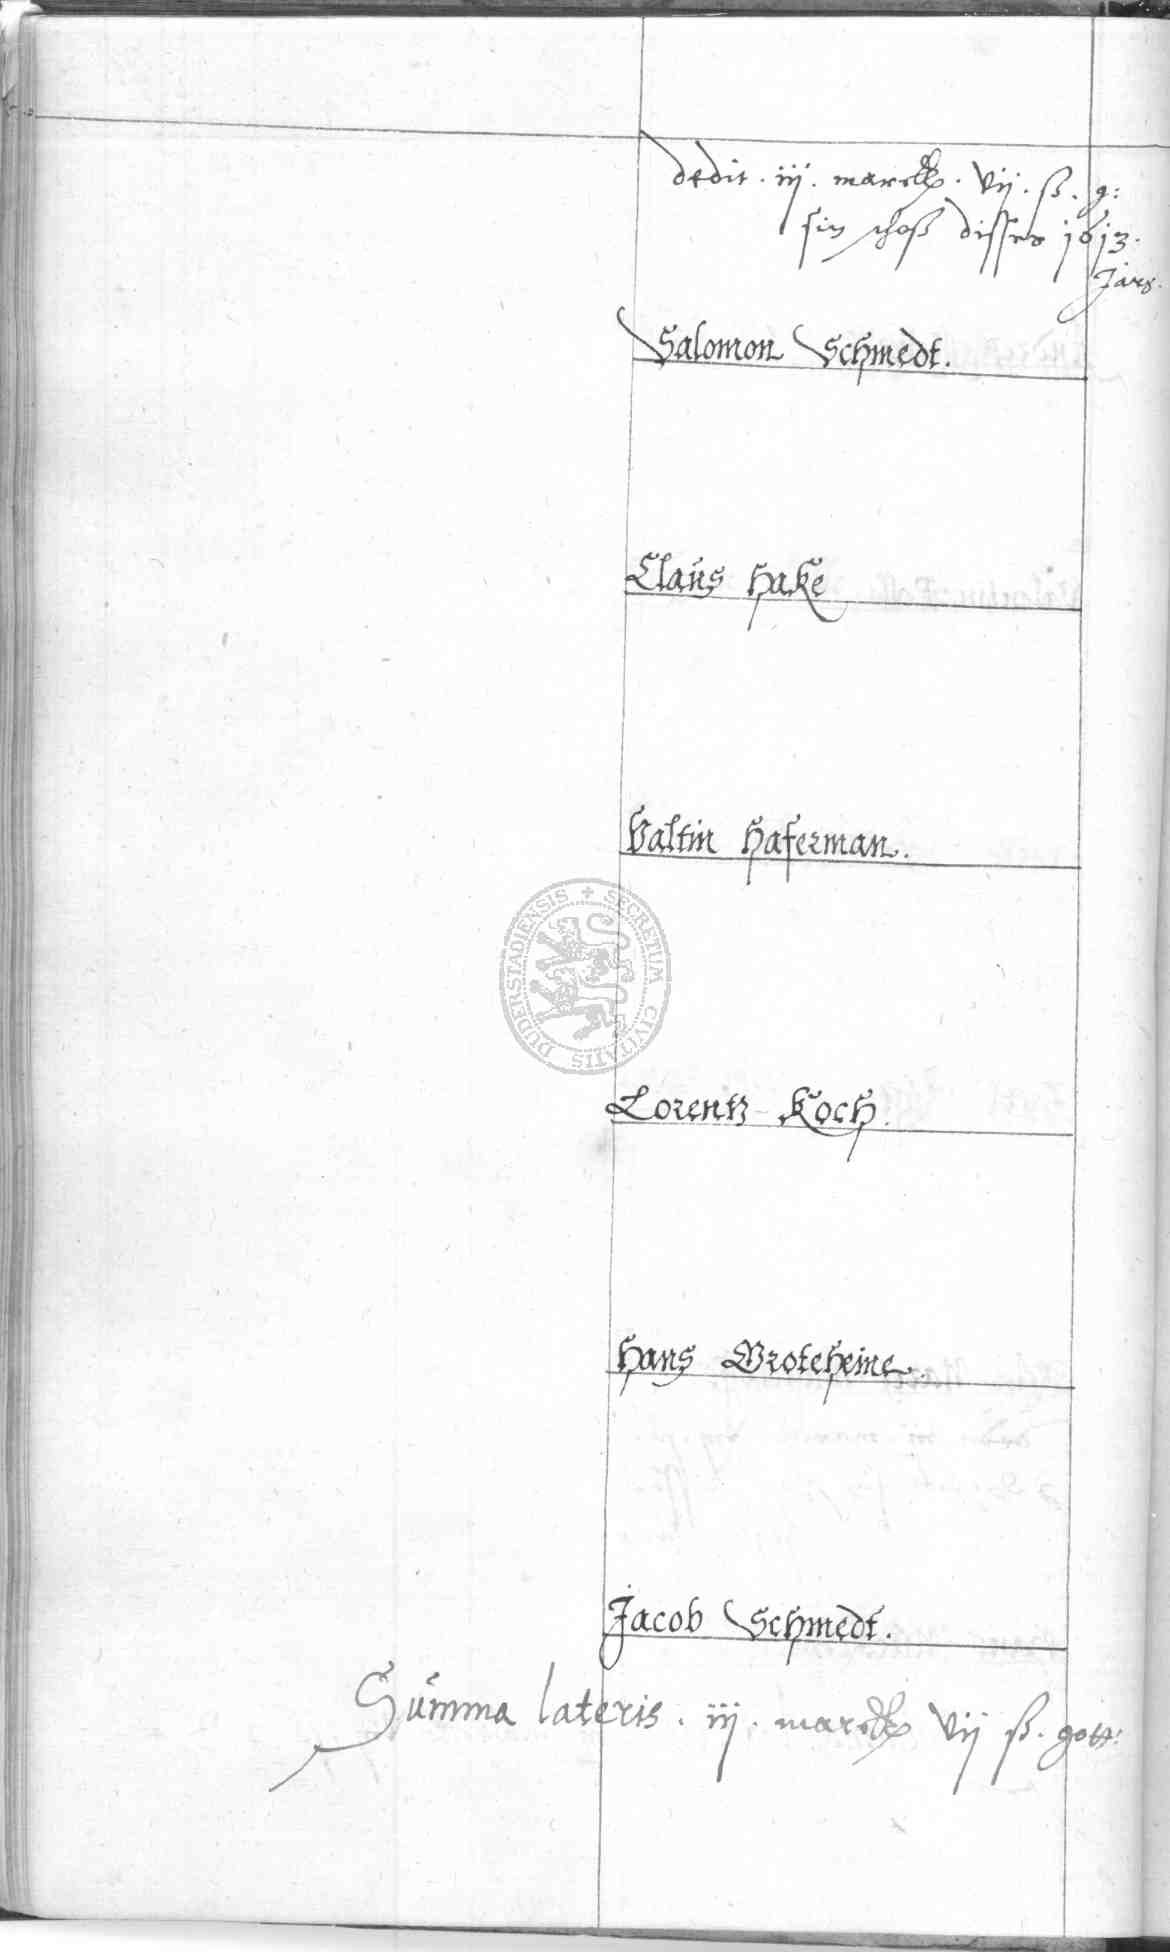 dedit . iij . marck . vij . ß . g:
sin schoß disses 1613.
Jars.
Salomon Schmedt.
Claus Hake
Valtin Haferman.
SECRETUM CIVITATIS DUDERSTADIENSIS
Lorentz Koch.
Hans Groteheine.
Jacob Schmedt.
Summa lateris . iij . marck vij ß . gott: